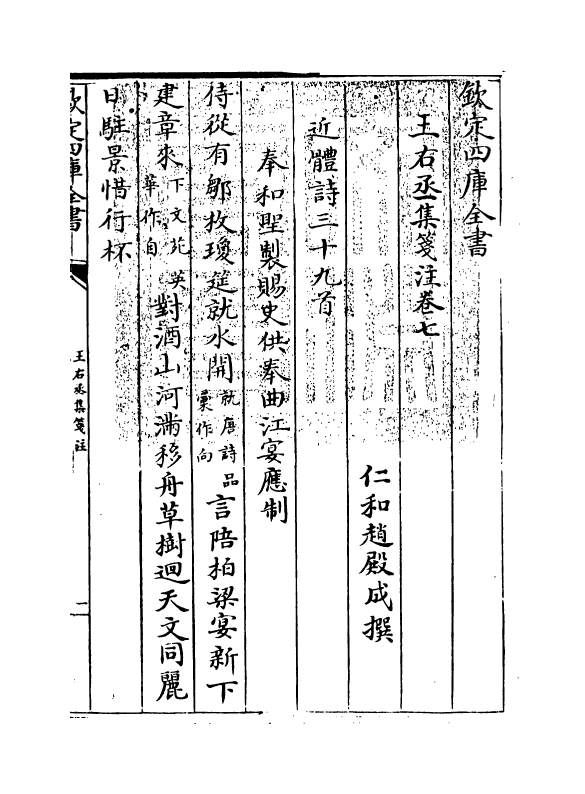 欽定四庫全書
王右丞集箋注卷七
仁和趙殿成撰
近體詩三十九首
奉和聖製賜史供奉曲江宴應制
侍從有鄒枚瓊筵就水開就唐詩品彙作向言陪柏梁宴新下
建章來下文苑英華作自對酒山河滿移舟草樹迴天文同麗
日駐景惜行杯
欽定四庫全書
王右丞集箋注
二